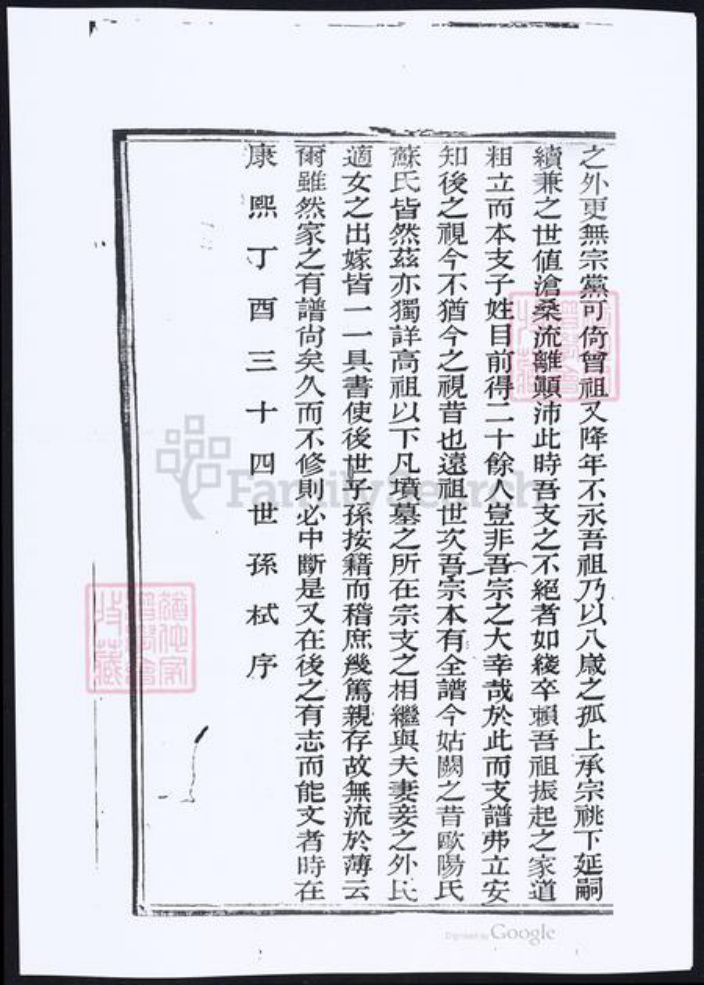 之外更無宗黨可倚曾祖又降年不永吾祖乃以八歲之孤上承宗祧下延嗣
續兼之世值滄桑流離顛沛此時吾支之不絕者如綫卒賴吾祖振起之家道
粗立而本支子姓目前得二十餘人豈非吾宗之大幸哉於此而支譜弗立安
知後之視今不猶今之視昔也遠祖世次吾宗本有全譜今姑闕之昔歐陽氏
蘇氏皆然茲亦獨詳高祖以下凡墳墓之所在宗支之相繼與夫妻妾之外氏
適女之出嫁皆一一具書使後世子孫按籍而稽庶幾篤親存故無流於薄云
爾雖然家之有譜尚矣久而不修則必中斷是又在後之有志而能文者時在
康熙丁酉三十四世孫栻序
FamilySearch
Digitized by Google